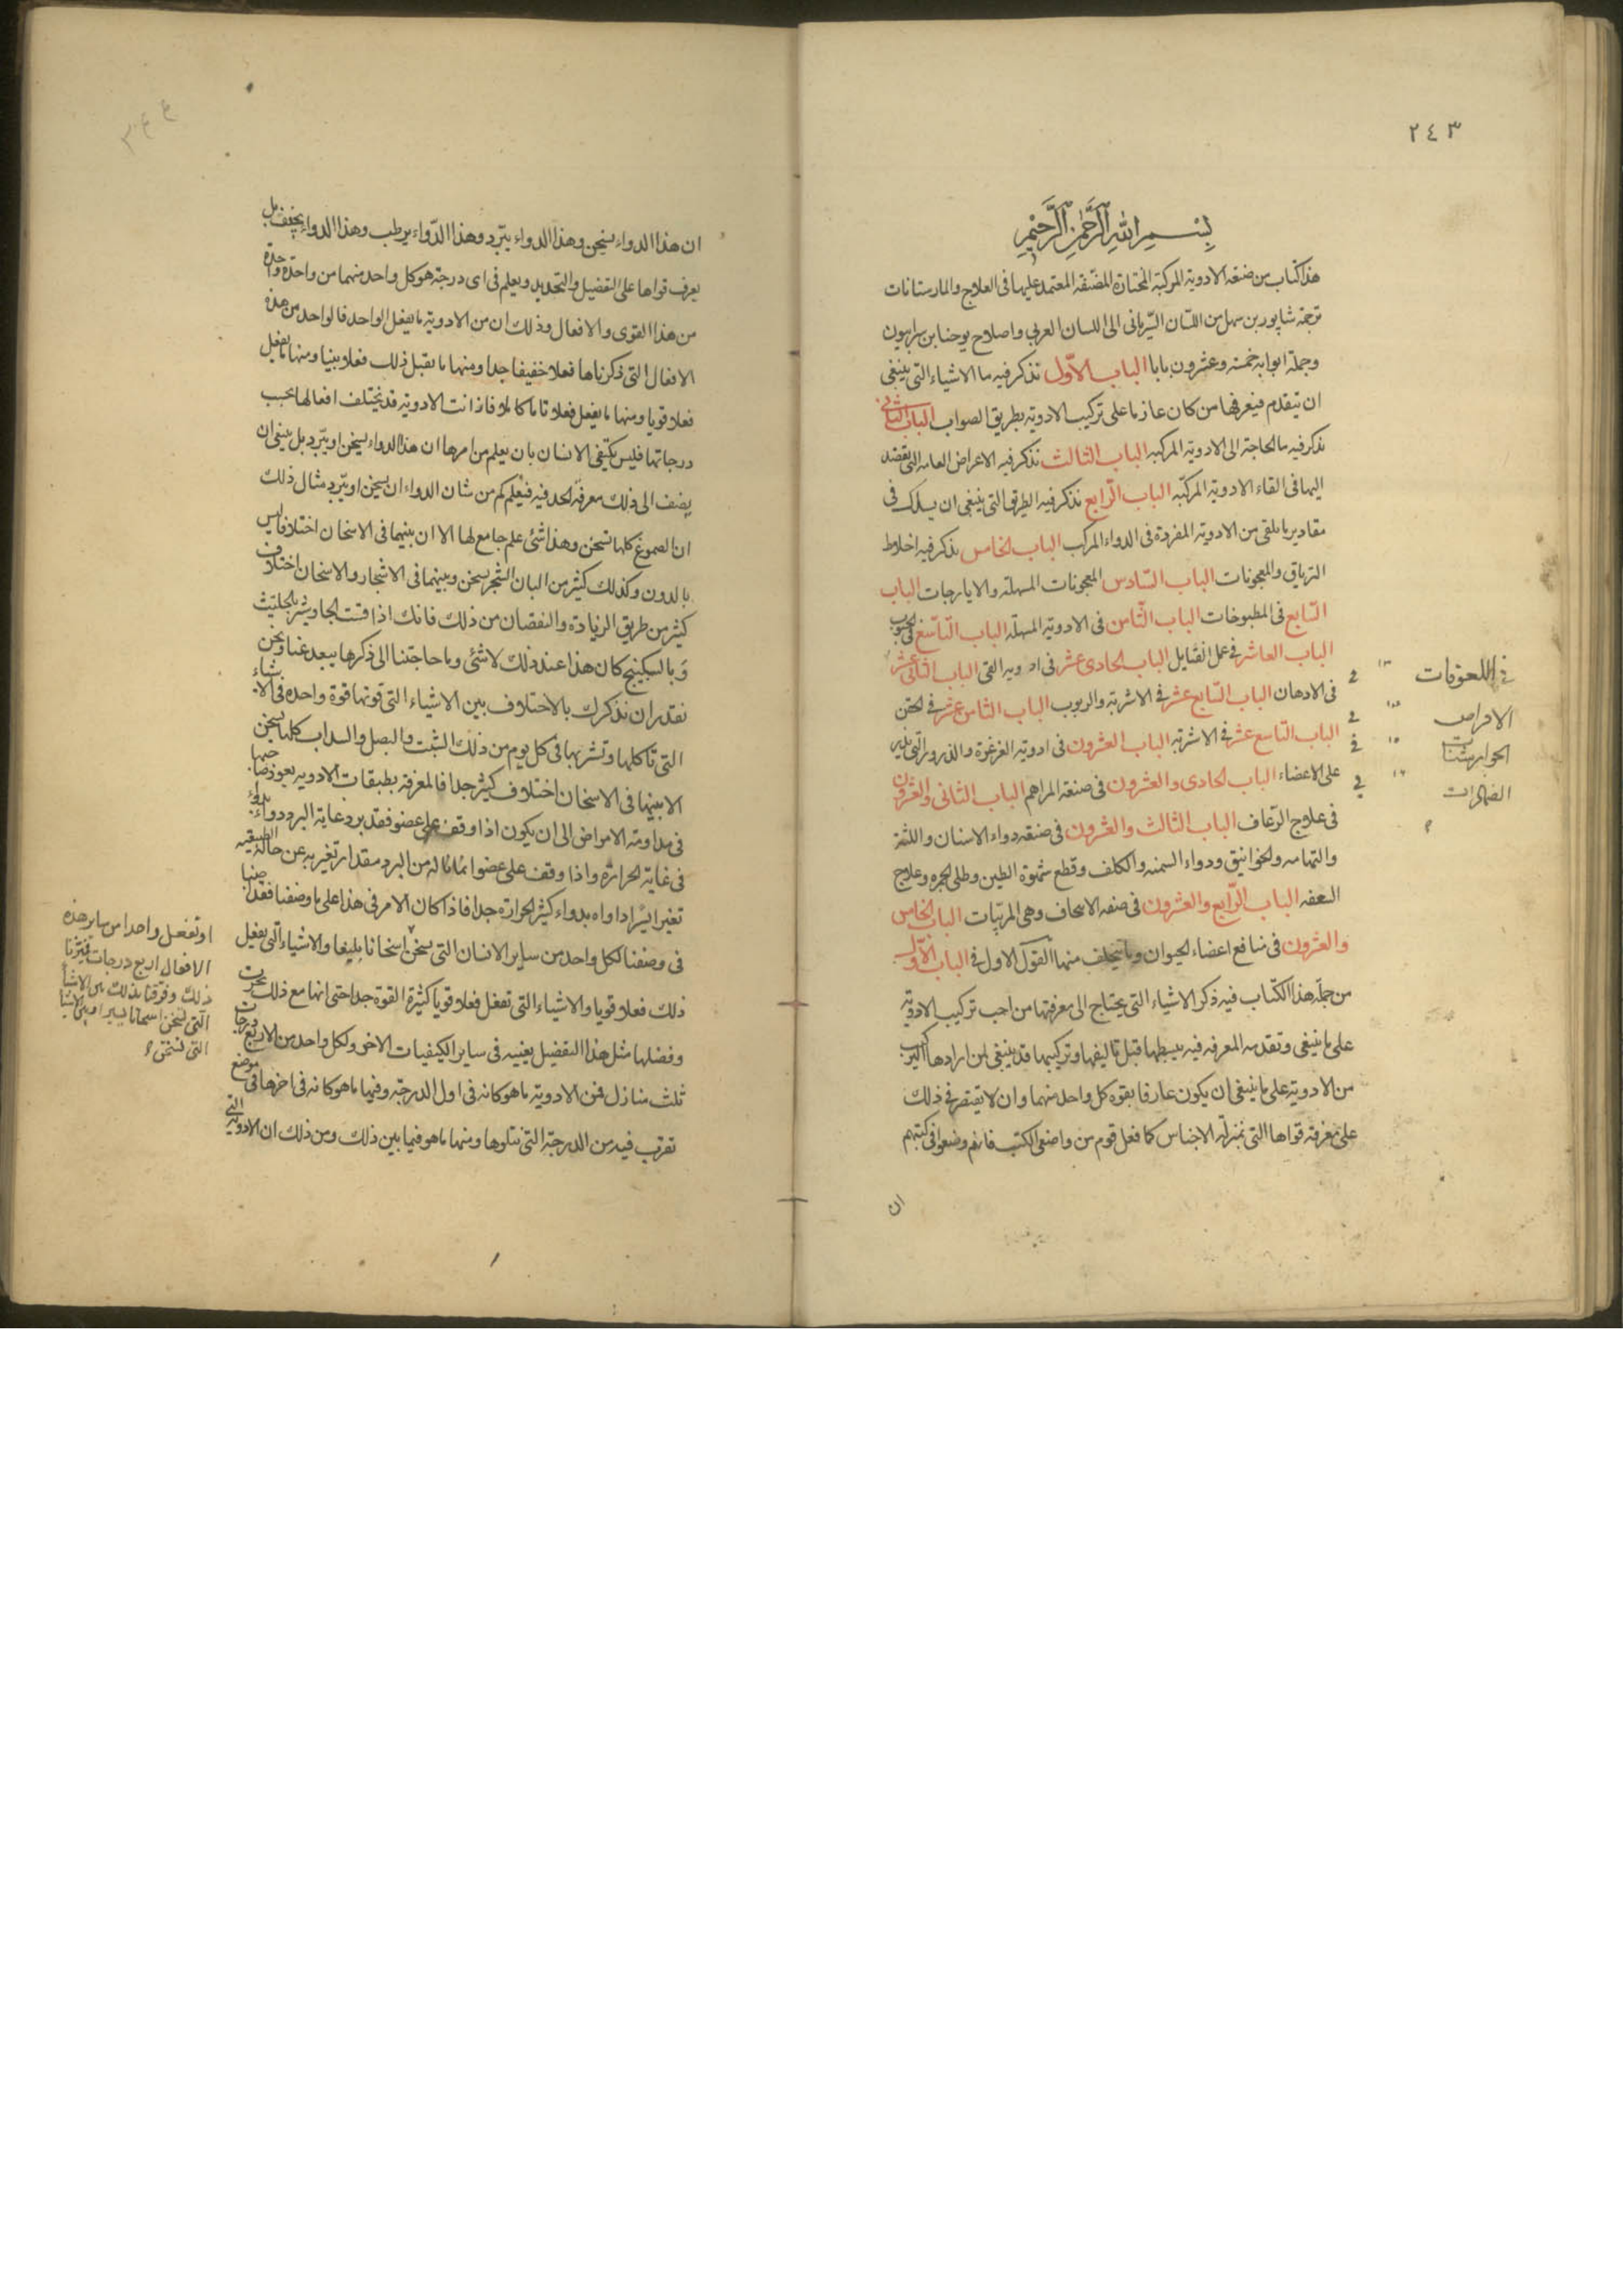 ٢٤٣
بسم الله الرحمن الرحيم
هذا كتاب من صنعة الادوية المركبة المعتمد عليها فى العلاج والمارستانات
ترجمة شاپور بن سهل من اللسان السريانى الى اللسان العربي واصلاح يوحنا بن سرابيون
وجملة ابوابه خمسة وعشرون بابا الباب الاول نذكر فيه ما الاشياء التى ينبغى
ان يتقدم فيعرفها من كان عازما على تركيب الادوية بطريق الصواب الباب الثانى
نذكر فيه ما الحاجة الى الادوية المركبه الباب الثالث نذكر فيه الاعراض العامه التى تقصد
اليها فى القاء الادوية المركبه الباب الرابع نذكر فيه الطرق التى ينبغى ان يسلك فى
مقادير ما يلقى من الادوية المفردة فى الدواء المركب الباب الخامس يذكر فيه اخلاط
الترياق والمعجونات الباب السادس المعجونات المسهلة والايارجات الباب
السابع فى المطبوخات الباب الثامن فى الادوية المسهله الباب التاسع فى الحبوب
الباب العاشر فى عمل الفتايل الباب الحادى عشر فى ادويه القى الباب الثانى عشر
فى الادهان الباب السابع عشر فى الاشربة والربوب الباب الثامن عشر فى الحقن
الباب التاسع عشر فى الاشربة الباب العشرون فى ادوية الغرغرة والذرور التى
على الاعضاء الباب الحادى والعشرون فى صنعة المراهم الباب الثانى والعشرون
فى علاج الرعاف الباب الثالث والعشرون فى صنعه دواء الاسنان واللثة
والخوانيق ودواء السمنه والكلف وقطع شهوة الطين وعلاج
السعفه الباب الرابع والعشرون فى صفه وهى المربيات الباب الخامس
والعشرون فى منافع اعضاء الحيوان وما يتحلف منها القول الاول فى الباب الاول
من جملة هذا الكتاب فيه ذكر الاشياء التى يحتاج الى معرفتها من احب تركيب الادوية
على ما ينبغى وتقدمه المعرفه فيه ببسيطها قبل تاليفها وتركيبها قد ينبغى لمن اراد
من الادوية على ما ينبغى ان يكون عارفا بقوة كل واحد منهما وان لا يقتصر فى ذلك
على معرفة قواها التى بمنزلة الاجناس كما فعل قوم من واضعى الكتب فانهم وضعوا فى كتبهم
ان
فى اللعوقات ١٣ فى
الاقراص ١٤ فى
الجوارشنات ١٥ فى
١٦ فى
ان هذا الدواء يسخن وهذا الدواء يبرد وهذا الدواء يرطب وهذا الدواء يجفف بل
يعرف قواها على التفضيل والتحديد ويعلم فى اى درجة هو كل واحد منهما من واحدة واحدة
من هذا القوى والافعال وذلك ان من الادوية ما يفعل الواحد فالواحد من هذه
الافعال التى ذكرناها فعلا خفيفا جدا ومنها ما يفعل ذلك فعلا بينا ومنها ما يفعل
فعلا قويا ومنها ما يفعل فعلا تاما كاملا فاذا كانت الادوية قد يختلف افعالها بحسب
درجاتها فليس يكتفى الانسان بان يعلم من امرها ان هذا الدواء يسخن او يبرد بل ينبغى ان
يضف الى ذلك معرفة الحد فيه فيعلم كم من شان الدواء ان يسخن او يبرد مثال ذلك
ان الصموغ كلها تسخن وهذا شئ علم جامع لها الا ان بينهما فى الاسخان اختلافا ليس
بالدون وكذلك كثير من البان الشجر يسخن وبينهما فى الاشجار والاسخان اختلاف
كثير من طريق الزيادة والنقصان من ذلك فانك اذا قست الجاوشير بالحلتيث
وبالسكبينج كان هذا عند ذلك لا شئ وما حاجتنا الى ذكر ما يبعد عنا ونحن
نقدر ان نذكرك بالاختلاف بين الاشياء التى قوتها قوة واحدة فى الاشياء
التى تاكلها وتشربها فى كل يوم من ذلك الشبت والبصل والسداب كلها يسخن
الا بينها فى الاسخان اختلاف كثير جدا فالمعرفة بطبقات الادويه
فى مداومة الامراض الى ان يكون اذا وقف على عضو فقد برد غاية البرد دواء بدواء
فى غاية الحرارة واذا وقف على عضو انما ناله من البرد مقدار تغير به عن حالة الطبيعيه
تغيرا يسيرا داواه بدواء كثير الحرارة جدا فاذا كان الامر فى هذا على ما وصفنا فقد
فى وصفنا لكل واحد من ساير الانسان التى يسخن اسخانا بليغا والاشياء التى يفعل
ذلك فعلا قويا والاشياء التى تفعل فعلا قويا كثيرة القوة جدا حتى انها مع ذلك تحرق
وفضلها مثل هذا التفضيل بعينه فى ساير الكيفيات الاخر ولكل واحد من الاربع درجات
ثلث منازل فمن الادوية ما هو كانه فى اول الدرجة وفيها ما هو كانه فى اخرها فى موضع
تقرب فيه من الدرجة التى تتلوها ومنها ما هو فيما بين ذلك ومن ذلك ان الادوية التى
او تفعل واحدا من ساير هذه
الافعال اربع درجات فميزنا
ذلك وفرقنا بذلك بين الاشيا
التى تسخن اسخانا يسيرا وبين الاشيا
التى تسخن